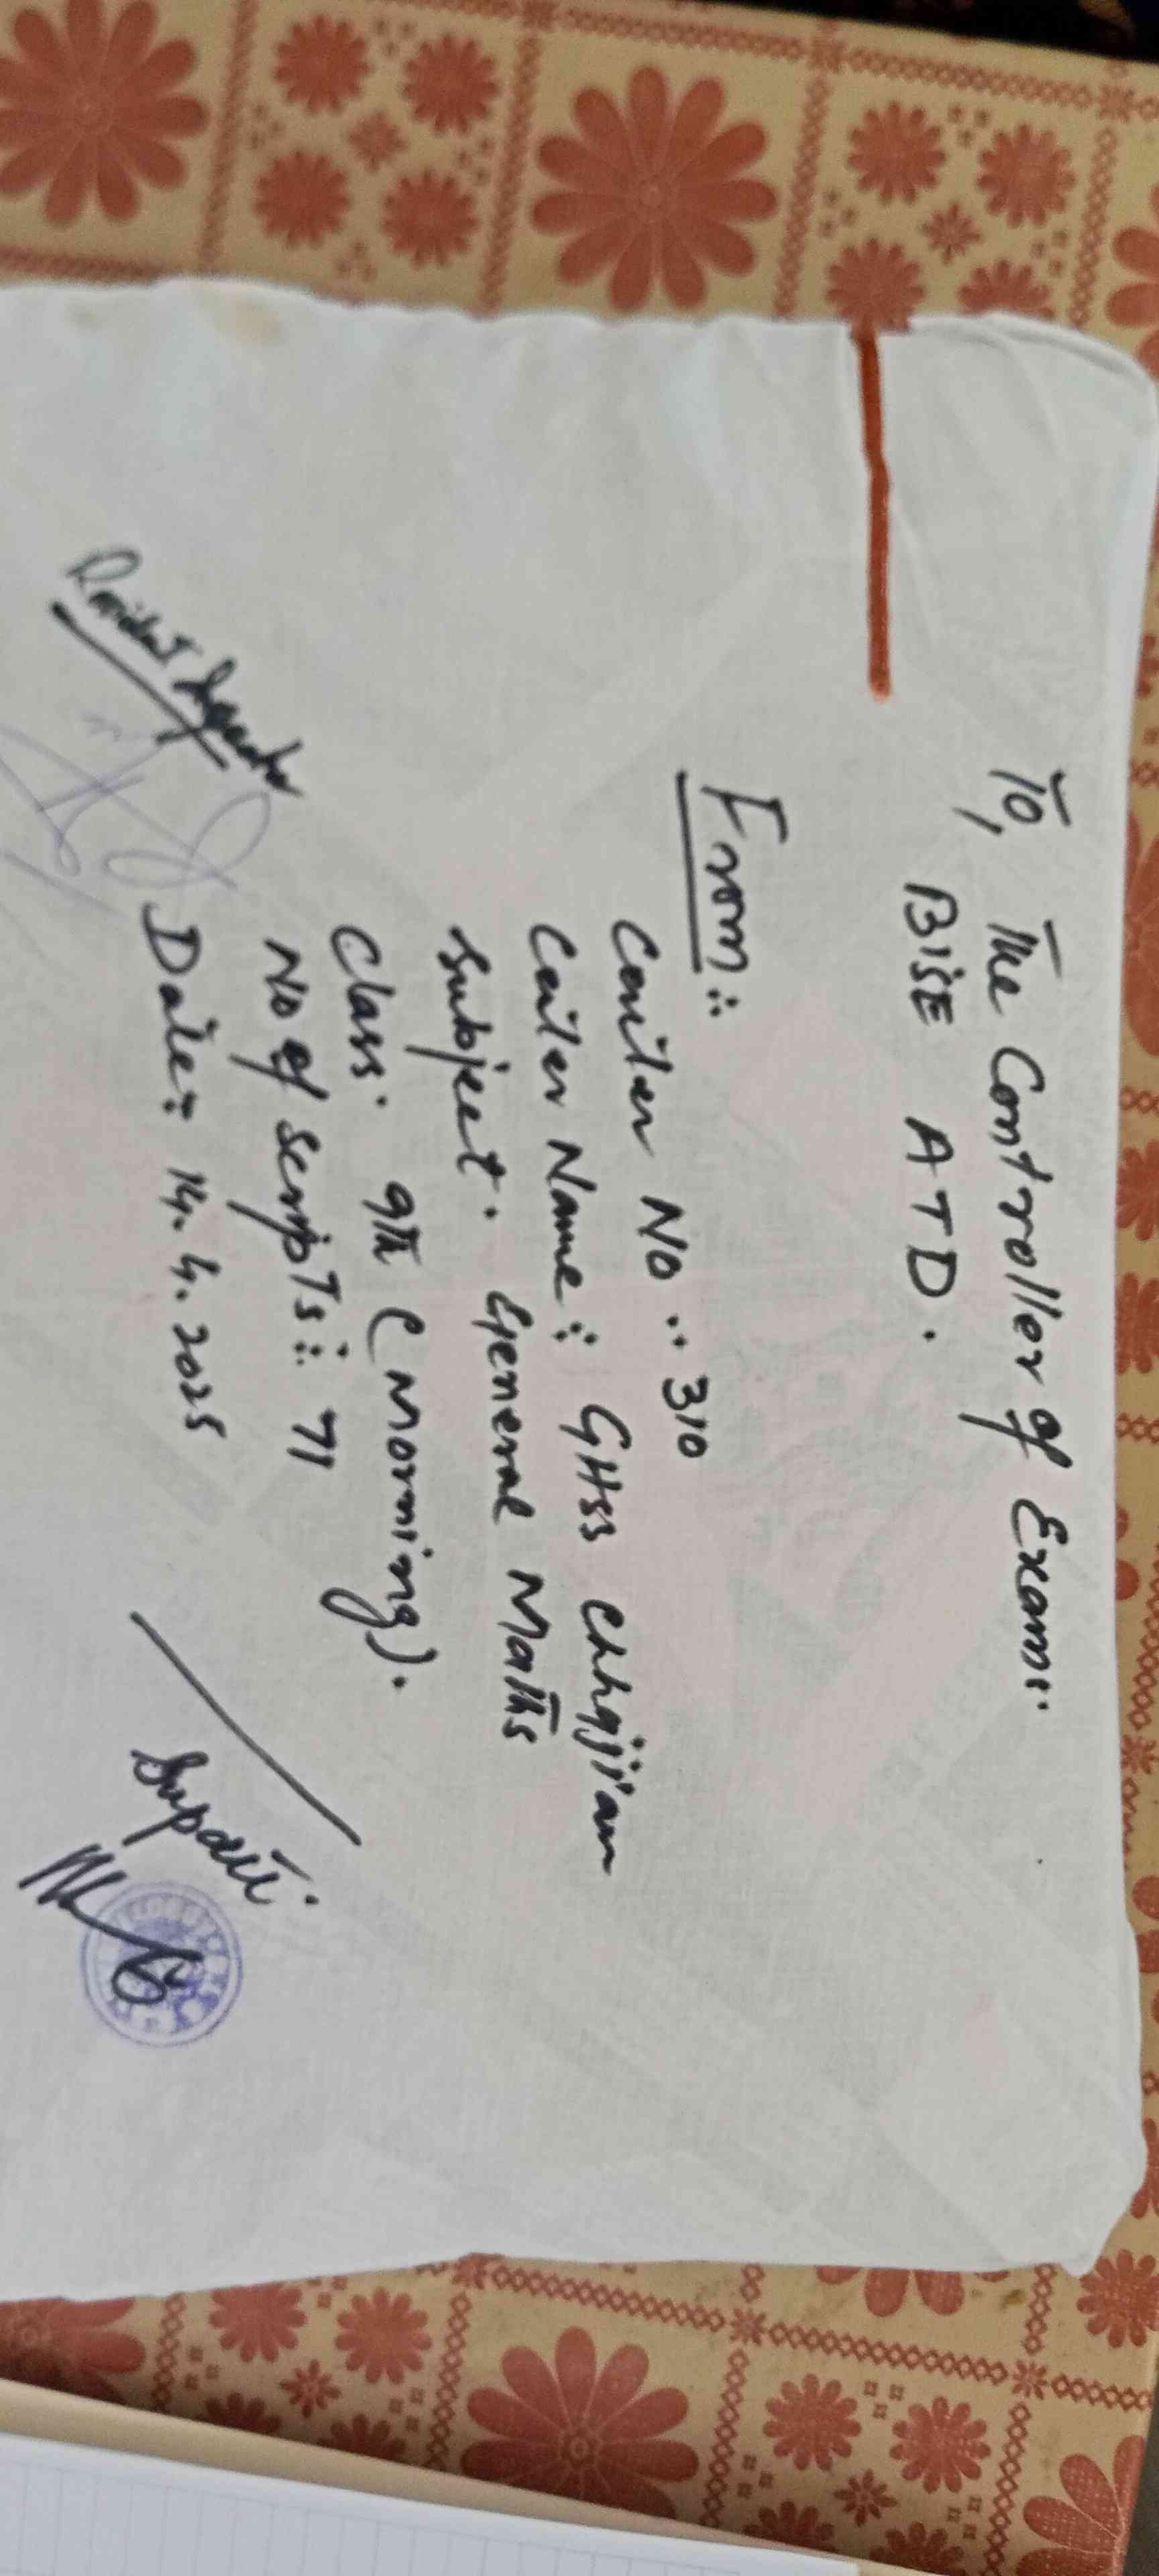 To, The Controller of Exam:
BISE ATD.
From:
Center No: 310
Center Name: GHSS Chhajjian
Subject. General Maths
Class. 9th (Morning).
No of scripts: 71
Date: 14.4.2025
Resident Inspector
Supdtt.